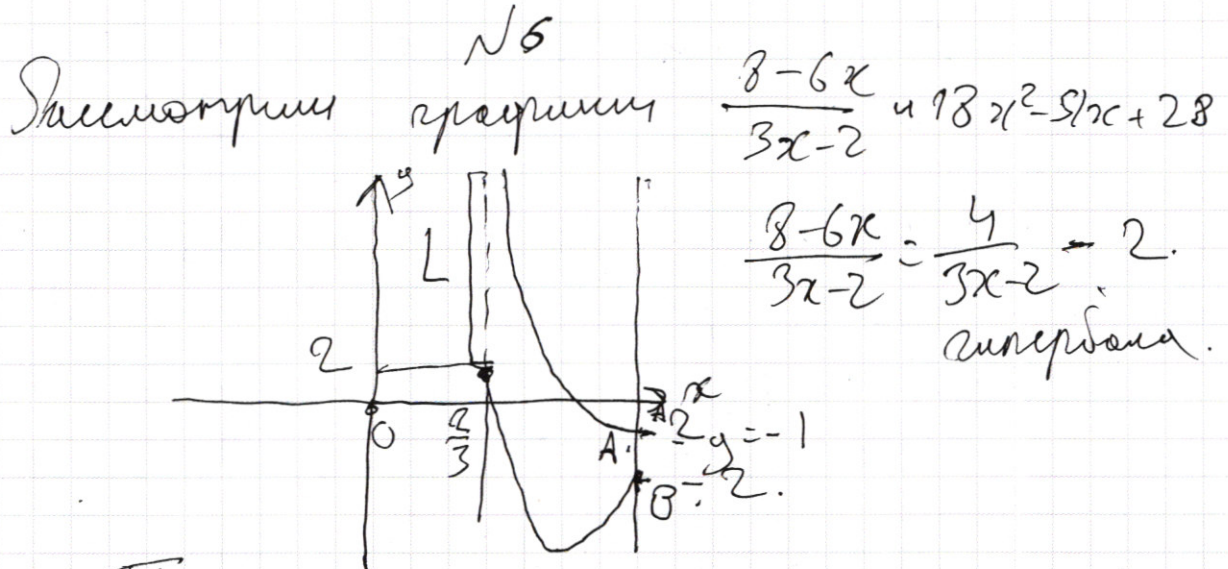 N6
Рассмотрим графики (8-6x)/(3x-2) и 18x²-51x+28
y
L
(8-6x)/(3x-2) = 4/(3x-2) - 2.
гипербола.
2
x
0
2/3
A.
2
y=-1
B
-2.